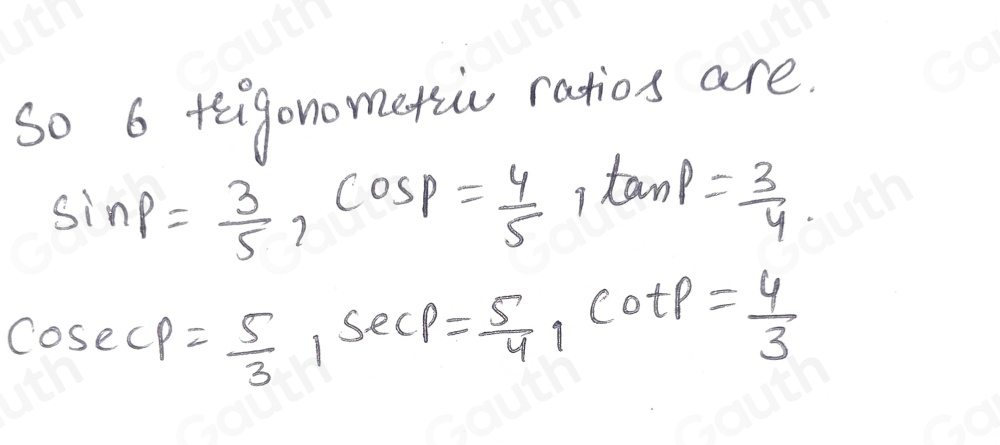 So 6 trigonometric ratios are.
sinp = 3/5, cosp = 4/5, tanp = 3/4.
cosecp = 5/3, secp = 5/4, cotp = 4/3